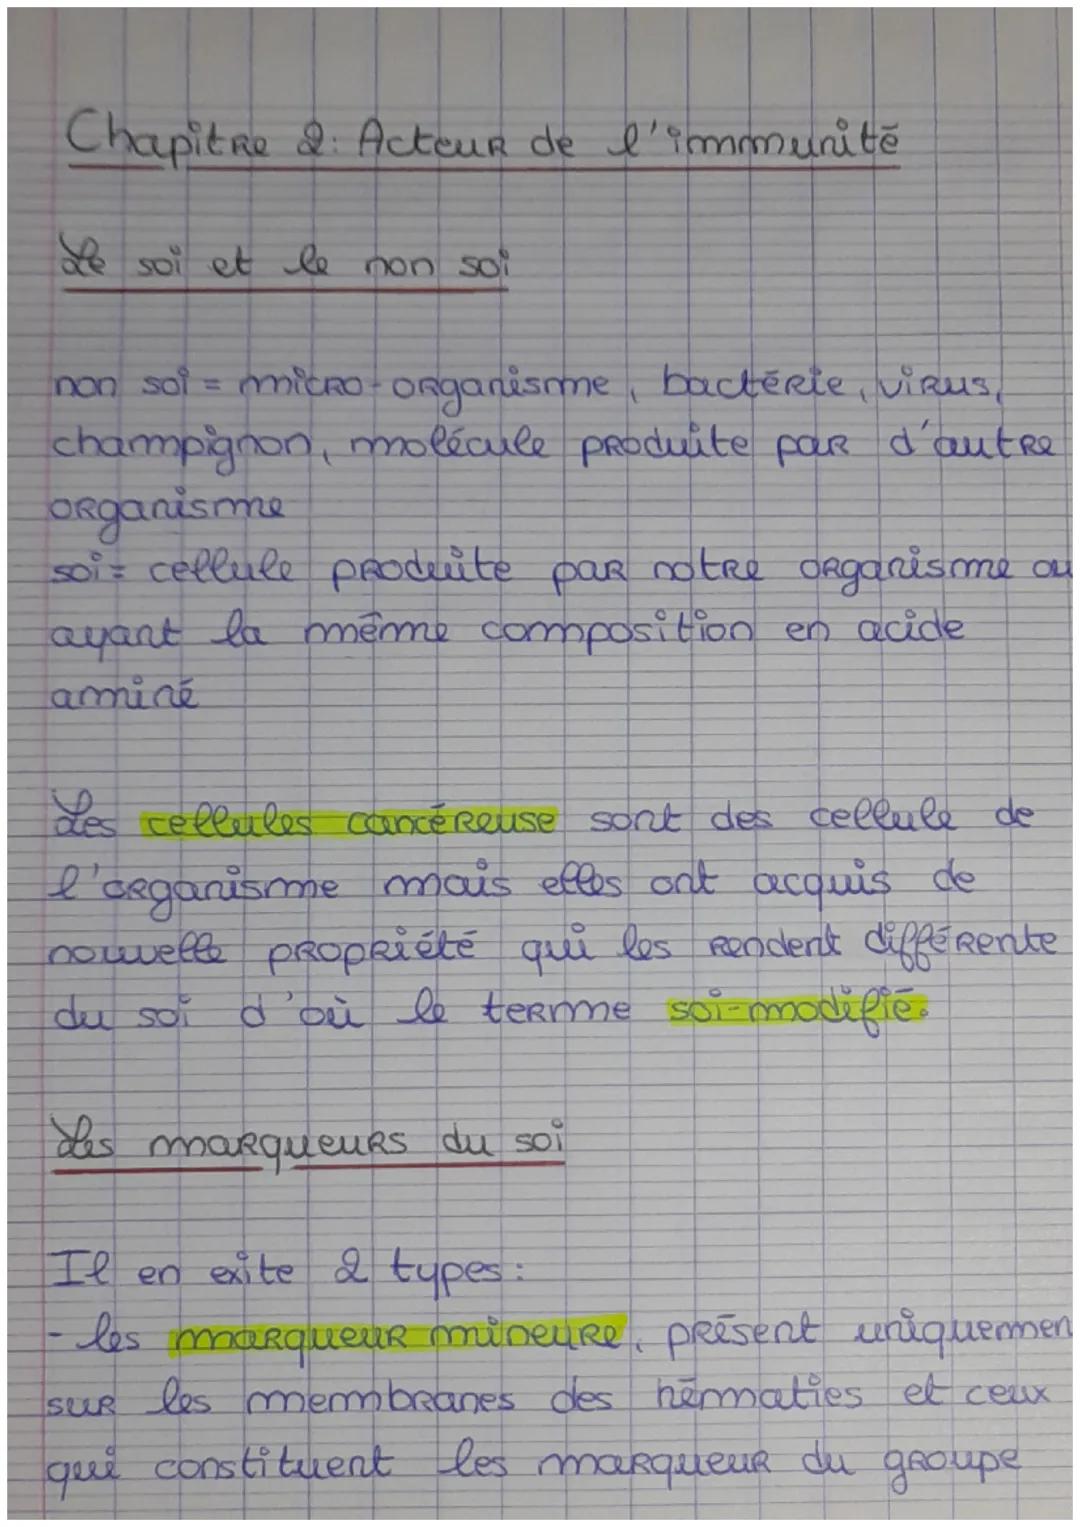 Chapitre 2: Acteur de l'immunité
Le soi et le non soi
non soi = micro-organisme, bactérie, virus,
champignon, molécule produite par d'autre
organisme
soi = cellule produite par notre organisme ou
ayant la même composition en acide
aminé
Les cellules cancéreuse sont des cellule de
l'organisme mais elles ont acquis de
nouvelle propriété qui les rendent différente
du soi d'où le terme soi-modifié.
Les marqueurs du soi
Il en exite 2 types :
- les marqueur mineure, présent uniquemen
sur les membranes des hématies et ceux
qui constituent les marqueur du groupe